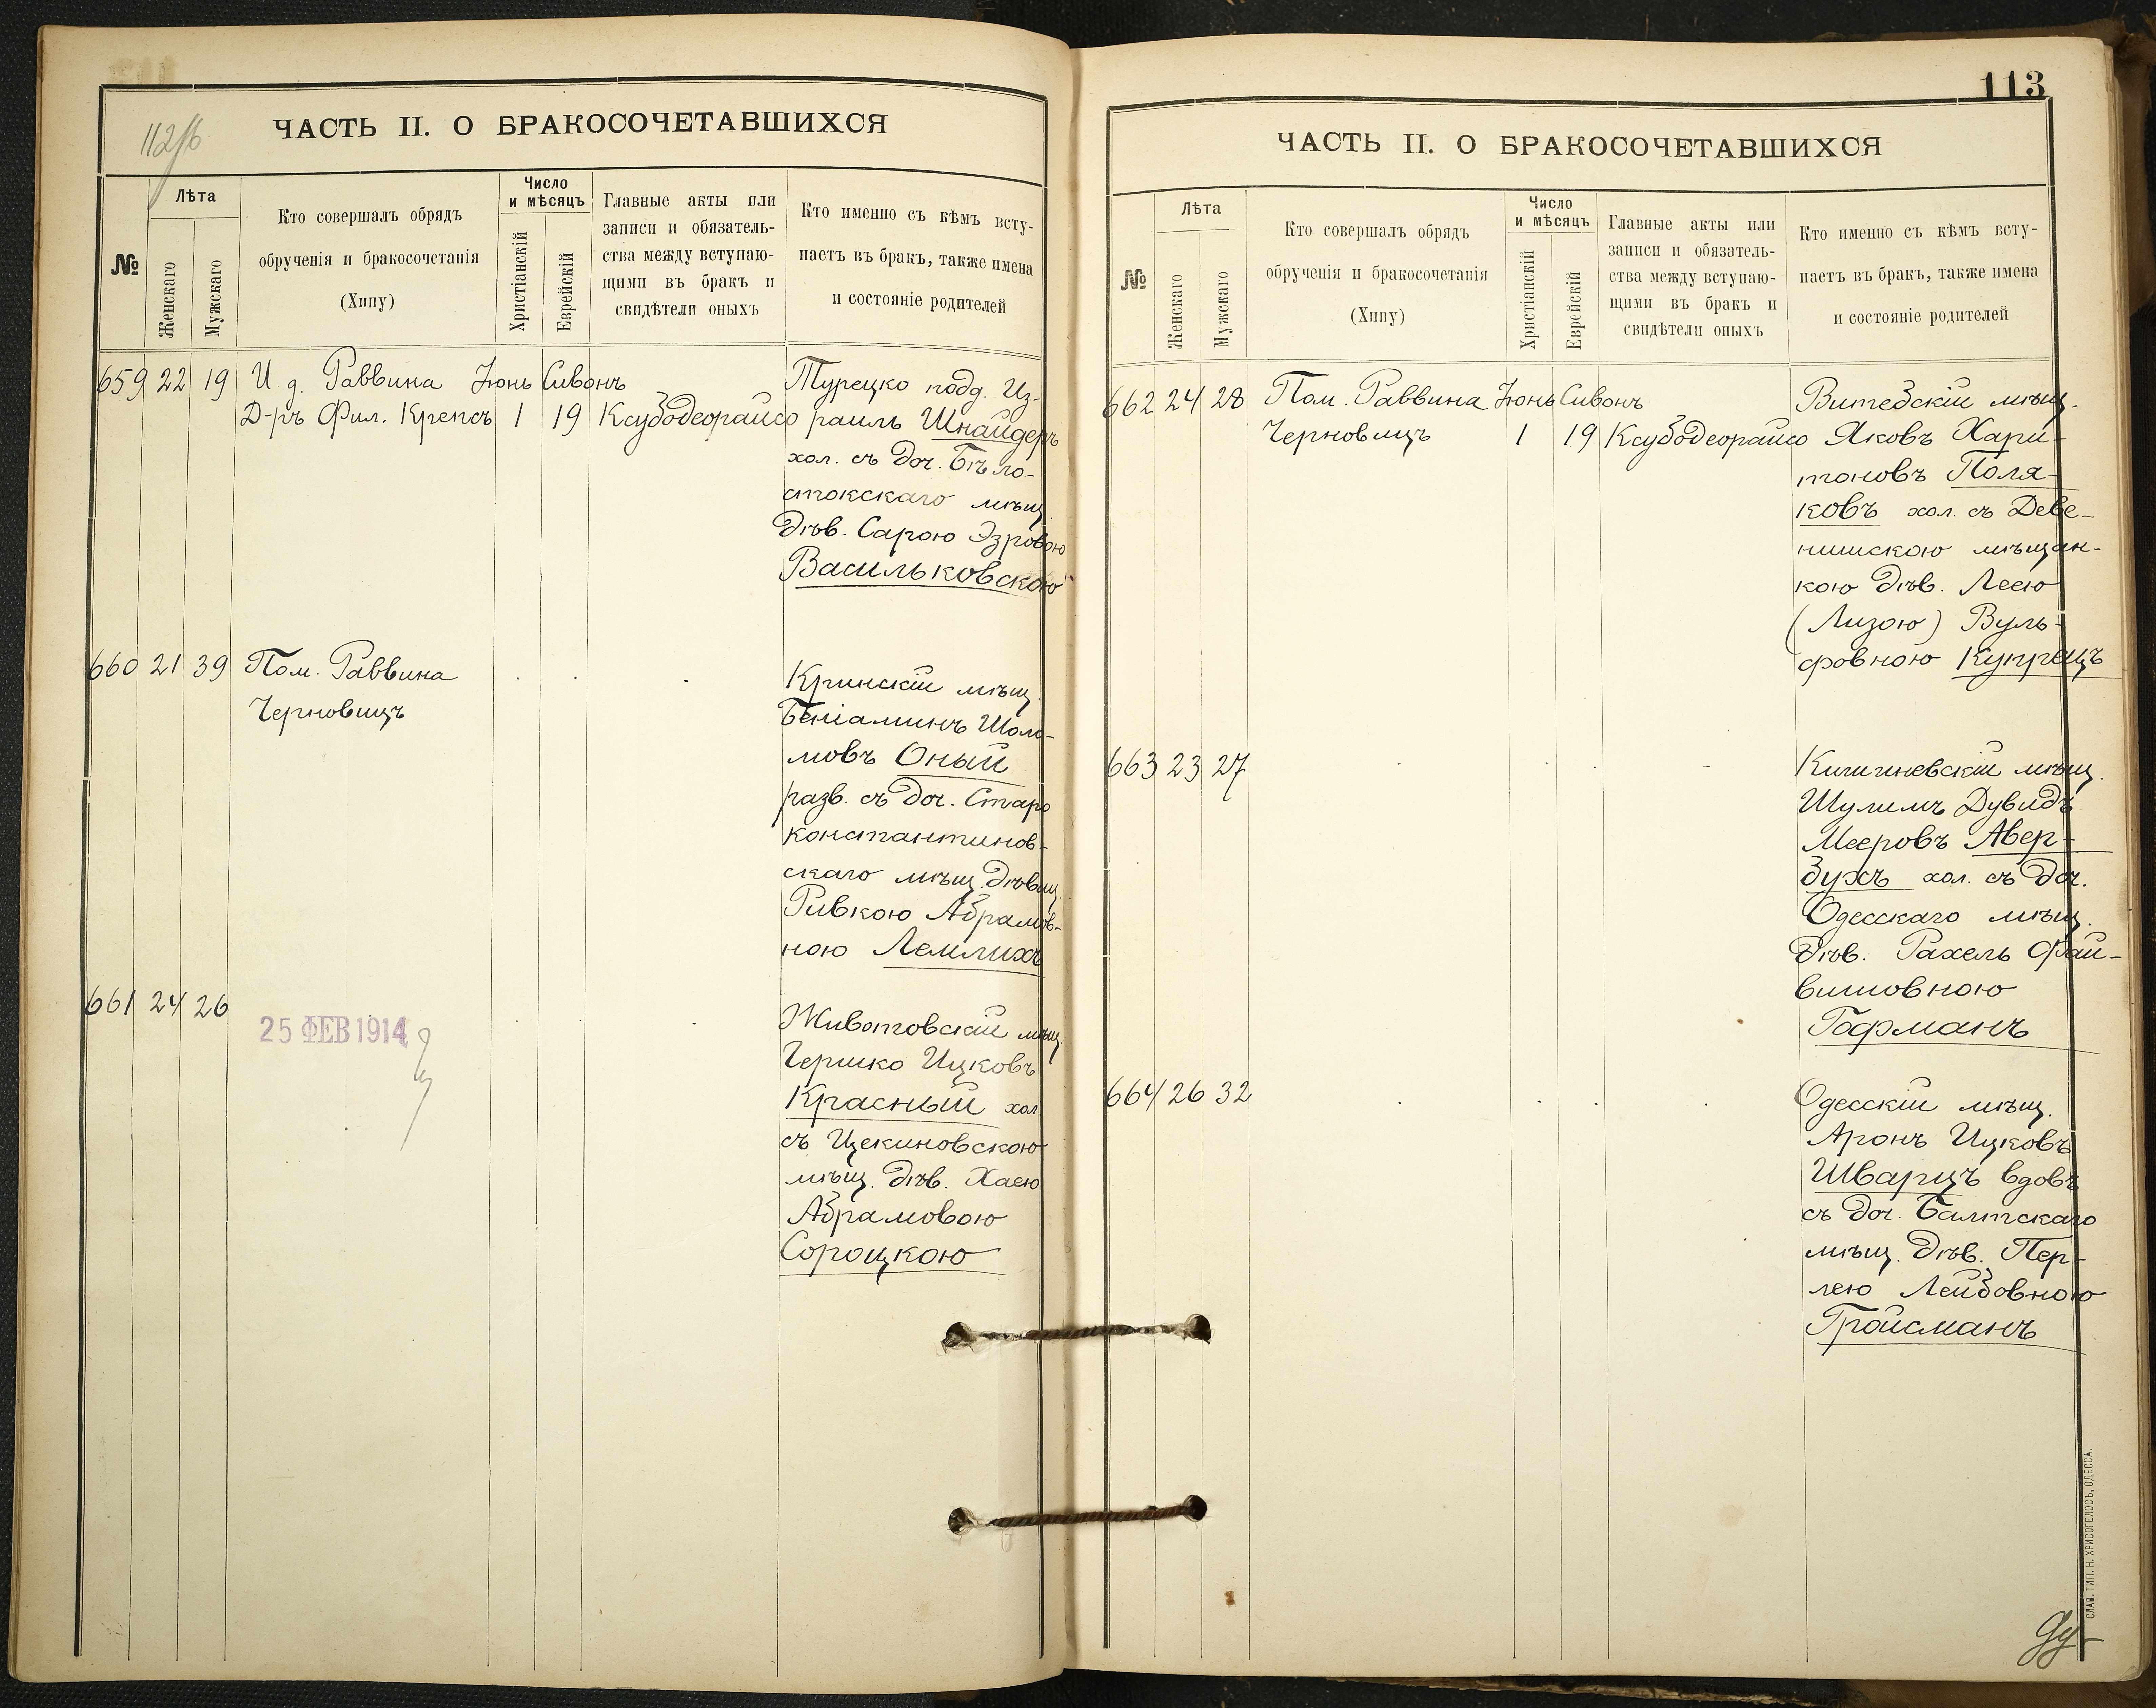 112 об
ЧАСТЬ II. О БРАКОСОЧЕТАВШИХСЯ
№
Лѣта
Женскаго
Мужскаго
Кто совершалъ обрядъ
обрученія и бракосочетанія
(Хипу)
Число
и мѣсяцъ
Христіанскій
Еврейскій
Главные акты или
записи и обязатель-
ства между вступаю-
щими въ бракъ и
свидѣтели оныхъ
Кто именно съ кѣмъ всту-
паетъ въ бракъ, также имена
и состояніе родителей
659 22 19 И. д. Раввина Іюнь Сивонъ
Д-ръ Фил. Крепсъ 1 19 Ксубодеорайсо
Турецко подд. Из-
раиль Шнайдеръ
хол. съ доч. Бѣло-
стокскаго мѣщ.
дѣв. Сарою Эзровою
Васильковскою
660 21 39 Пом. Раввина
Черновицъ
Кринскій мѣщ.
Беніаминъ Шоло-
мовъ Оный
разв. съ доч. Старо
константинов-
скаго мѣщ. дѣвиц.
Ривкою Абрамов-
ною Лемлихъ
661 24 26
25 ФЕВ 1914
Животовскій мѣщ.
Гершко Ицковъ
Красный хол.
съ Цекиновскою
мѣщ. дѣв. Хаею
Абрамовою
Сороцкою
113
ЧАСТЬ II. О БРАКОСОЧЕТАВШИХСЯ
№
Лѣта
Женскаго
Мужскаго
Кто совершалъ обрядъ
обрученія и бракосочетанія
(Хипу)
Число
и мѣсяцъ
Христіанскій
Еврейскій
Главные акты или
записи и обязатель-
ства между вступаю-
щими въ бракъ и
свидѣтели оныхъ
Кто именно съ кѣмъ всту-
паетъ въ бракъ, также имена
и состояніе родителей
662 24 28 Пом. Раввина Іюнь Сивонъ
Черновицъ 1 19 Ксубодеорайсо
Витебскій мѣщ.
Яковъ Хари-
тоновъ Поля-
ковъ хол. съ Деве-
нишскою мѣщан-
кою дѣв. Леею
(Лизою) Вуль-
фовною Купрецъ
663 23 27
Кишиневскій мѣщ.
Шулимъ Дувидъ
Мееровъ Авер-
бухъ хол. съ доч.
Одесскаго мѣщ.
дѣв. Рахель Фай-
вишовною
Гофманъ
664 26 32
Одесскій мѣщ.
Аронъ Ицковъ
Шварцъ вдовъ
съ доч. Балтскаго
мѣщ. дѣв. Пер-
лею Лейбовною
Гройсманъ
СЛАВ. ТИП. Н. ХРИСОГЕЛОСЪ, ОДЕССА.